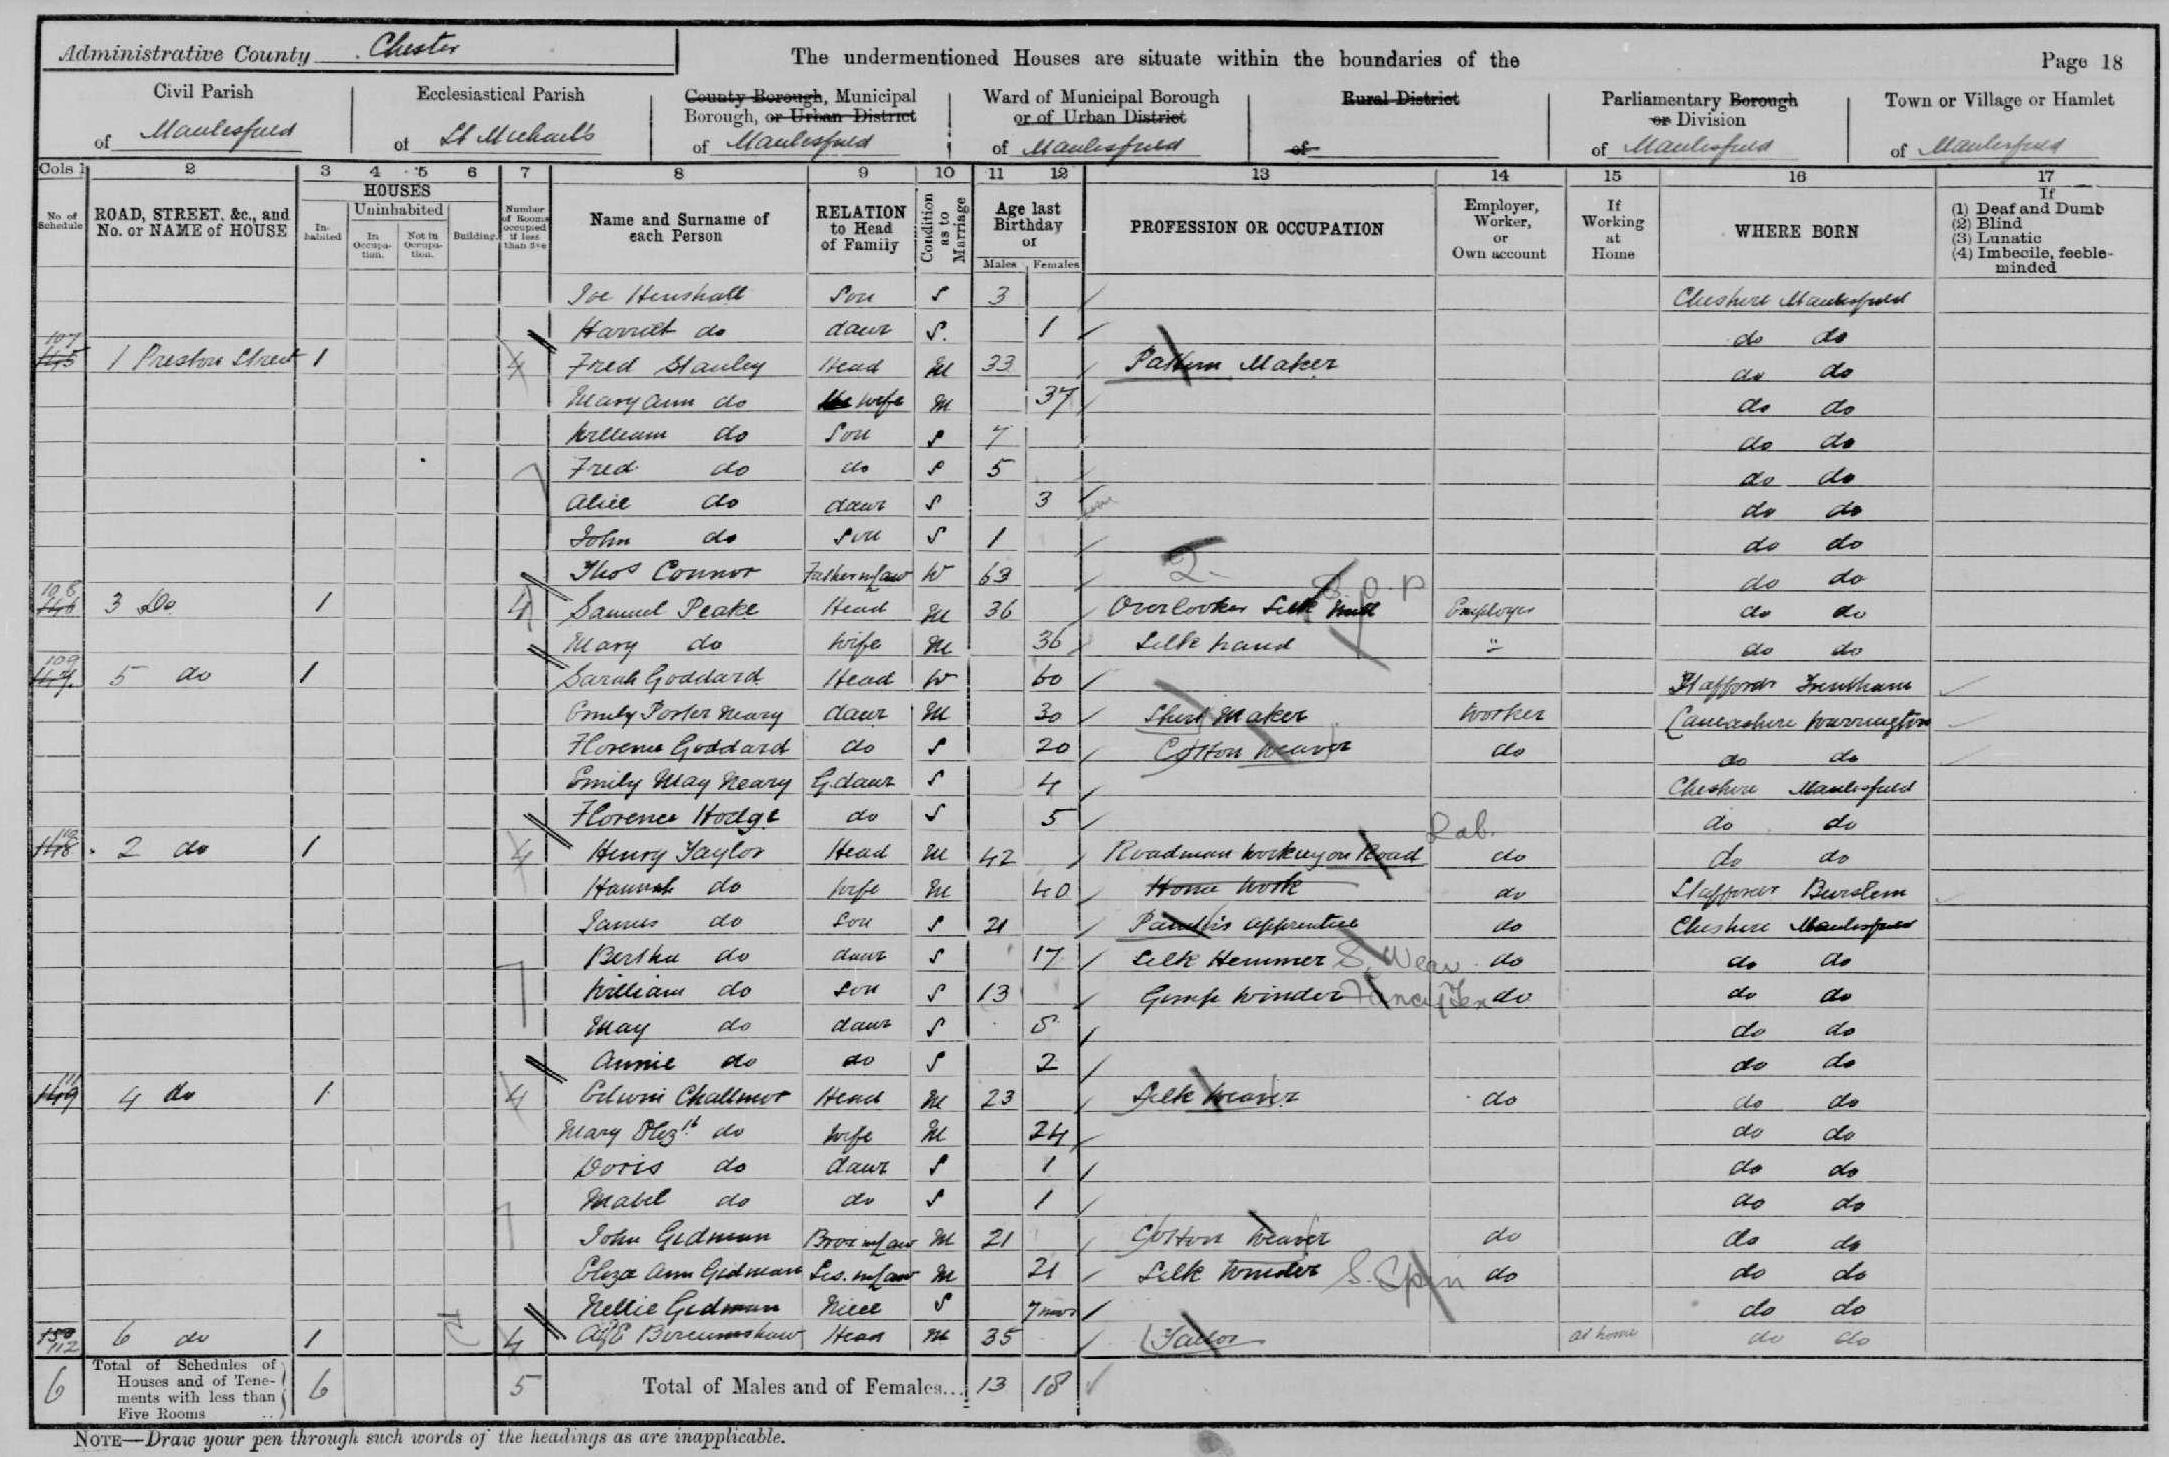 Administrative County Chester The undermentioned Houses are situate within the boundaries of the Page 18
Civil Parish of Macclesfield
Ecclesiastical Parish of St Michaels
County Borough, Municipal Borough, or Urban District of Macclesfield
Ward of Municipal Borough or of Urban District of Macclesfield
Rural District of
Parliamentary Borough or Division of Macclesfield
Town or Village or Hamlet of Macclesfield
Cols 1 2 3 4 5 6 7 8 9 10 11 12 13 14 15 16 17
No. of Schedule
ROAD, STREET, &c., and No. or NAME of HOUSE
HOUSES
In-habited
Uninhabited
In Occupa-tion.
Not in Occupa-tion.
Building.
Number of Rooms occupied if less than five
Name and Surname of each Person
RELATION to Head of Family
Condition as to Marriage
Age last Birthday of
Males Females
PROFESSION OR OCCUPATION
Employer, Worker, or Own account
If Working at Home
WHERE BORN
If
(1) Deaf and Dumb
(2) Blind
(3) Lunatic
(4) Imbecile, feeble-minded
Joe Henshall Son S 3 Cheshire Macclesfield
Harriet do daur S. 1 do do
107 145 1 Preston Street 1 4 Fred Stanley Head M 33 Pattern Maker do do
Mary Ann do wife M 37 do do
William do Son S 7 do do
Fred do do S 5 do do
Alice do daur S 3 do do
John do Son S 1 do do
Thos Connor Father in Law W 63 2. do do
108 146 3 Do 1 4 Samuel Peake Head M 36 Overlooker Silk Mill S.O.P Employer do do
Mary do wife M 36 Silk hand " do do
109 147 5 do 1 Sarah Goddard Head W 60 Staffords Trentham
Emily Porter Neary daur M 30 Shirt Maker Worker Lancashire Warrington
Florence Goddard do S 20 Cotton Weaver do do do
Emily May Neary G.daur S 4 Cheshire Macclesfield
Florence Hodge do S 5 do do
110 148 2 do 1 4 Henry Taylor Head M 42 Roadman Working on Road Lab. do do do
Hannah do wife M 40 Home Work do Staffords Burslem
James do son S 21 Painters Apprentice do Cheshire Macclesfield
Bertha do daur S 17 Silk Hemmer S. Weav do do do
William do son S 13 Gimp Winder Fancy Tex do do do
May do daur S 5 do do
Annie do do S 2 do do
111 149 4 do 1 4 Edwin Challinor Head M 23 Silk Weaver do do do
Mary Elizth do wife M 24 do do
Doris do daur S 1 do do
Mabel do do S 1 do do
John Gidman Bror in Law M 21 Cotton Weaver do do do
Eliza Ann Gidman Sis. in Law M 21 Silk Winder S. Spin do do do
Nellie Gidman Niece S 7 mos do do
150 112 6 do 1 4 Head M 35 Tailor at home do do
6 Total of Schedules of Houses and of Tene-ments with less than Five Rooms 6 5 Total of Males and of Females... 13 18
NOTE—Draw your pen through such words of the headings as are inapplicable.